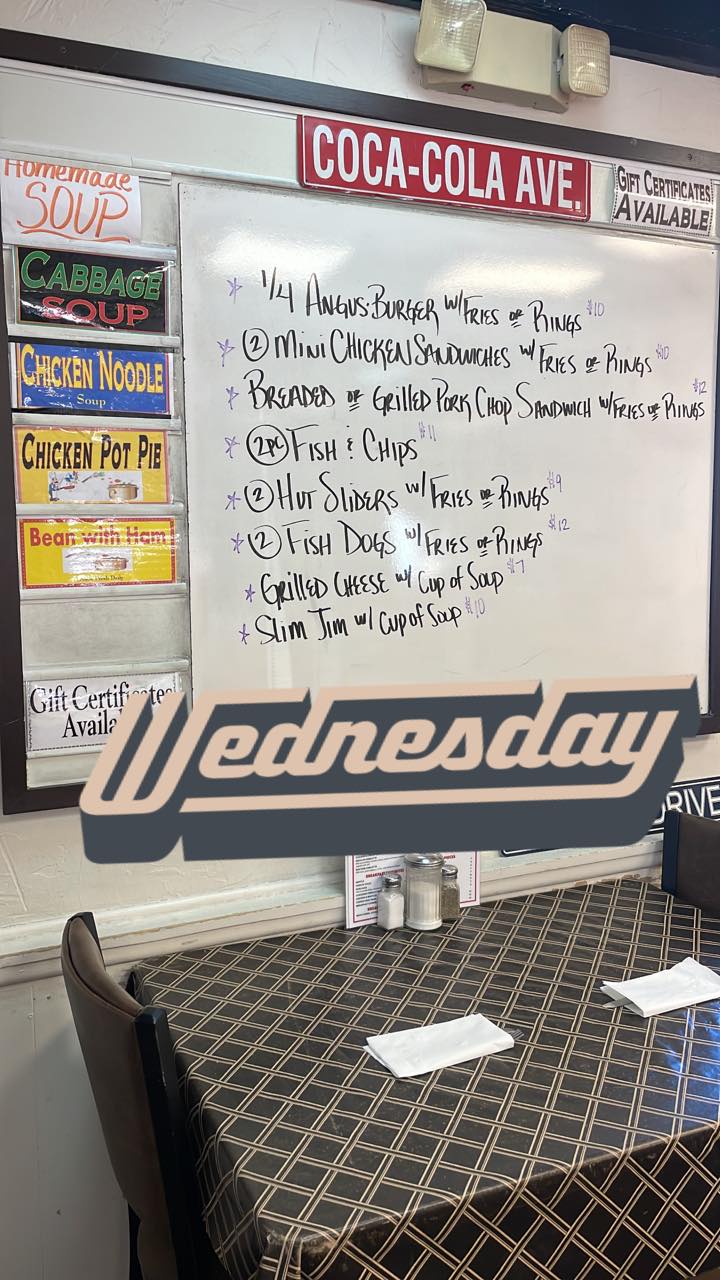 COCA-COLA AVE.
GIFT CERTIFICATES
AVAILABLE
Homemade
SOUP
CABBAGE
SOUP
CHICKEN NOODLE
Soup
CHICKEN POT PIE
Bean with Ham
Gift Certificates
Availa
* 1/4 ANGUS BURGER W/FRIES OR RINGS $10
* 2 MINI CHICKEN SANDWICHES W/ FRIES OR RINGS $10
* BREADED OR GRILLED PORK CHOP SANDWICH W/FRIES OR RINGS $12
* 2PC FISH & CHIPS $11
* 2 HUT SLIDERS W/ FRIES OR RINGS $9
* 2 FISH DOGS W/ FRIES OR RINGS $12
* GRILLED CHEESE W/ CUP OF SOUP $7
* SLIM JIM W/ CUP OF SOUP $10
Wednesday
DRIVE